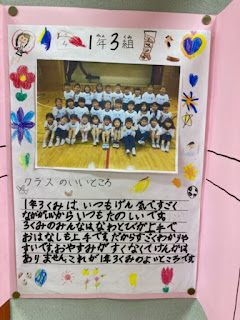 1年3組
クラスのいいところ
1年3くみは、いつもげん気ですごく
なががいいからいつもたのしいです。
3くみのみんなはなわとびが上手で
おはなしも上手です。だからすごくわかりや
すいです。おやすみがすくなくてけんかは
ありません。これが1年3くみのよいところです。